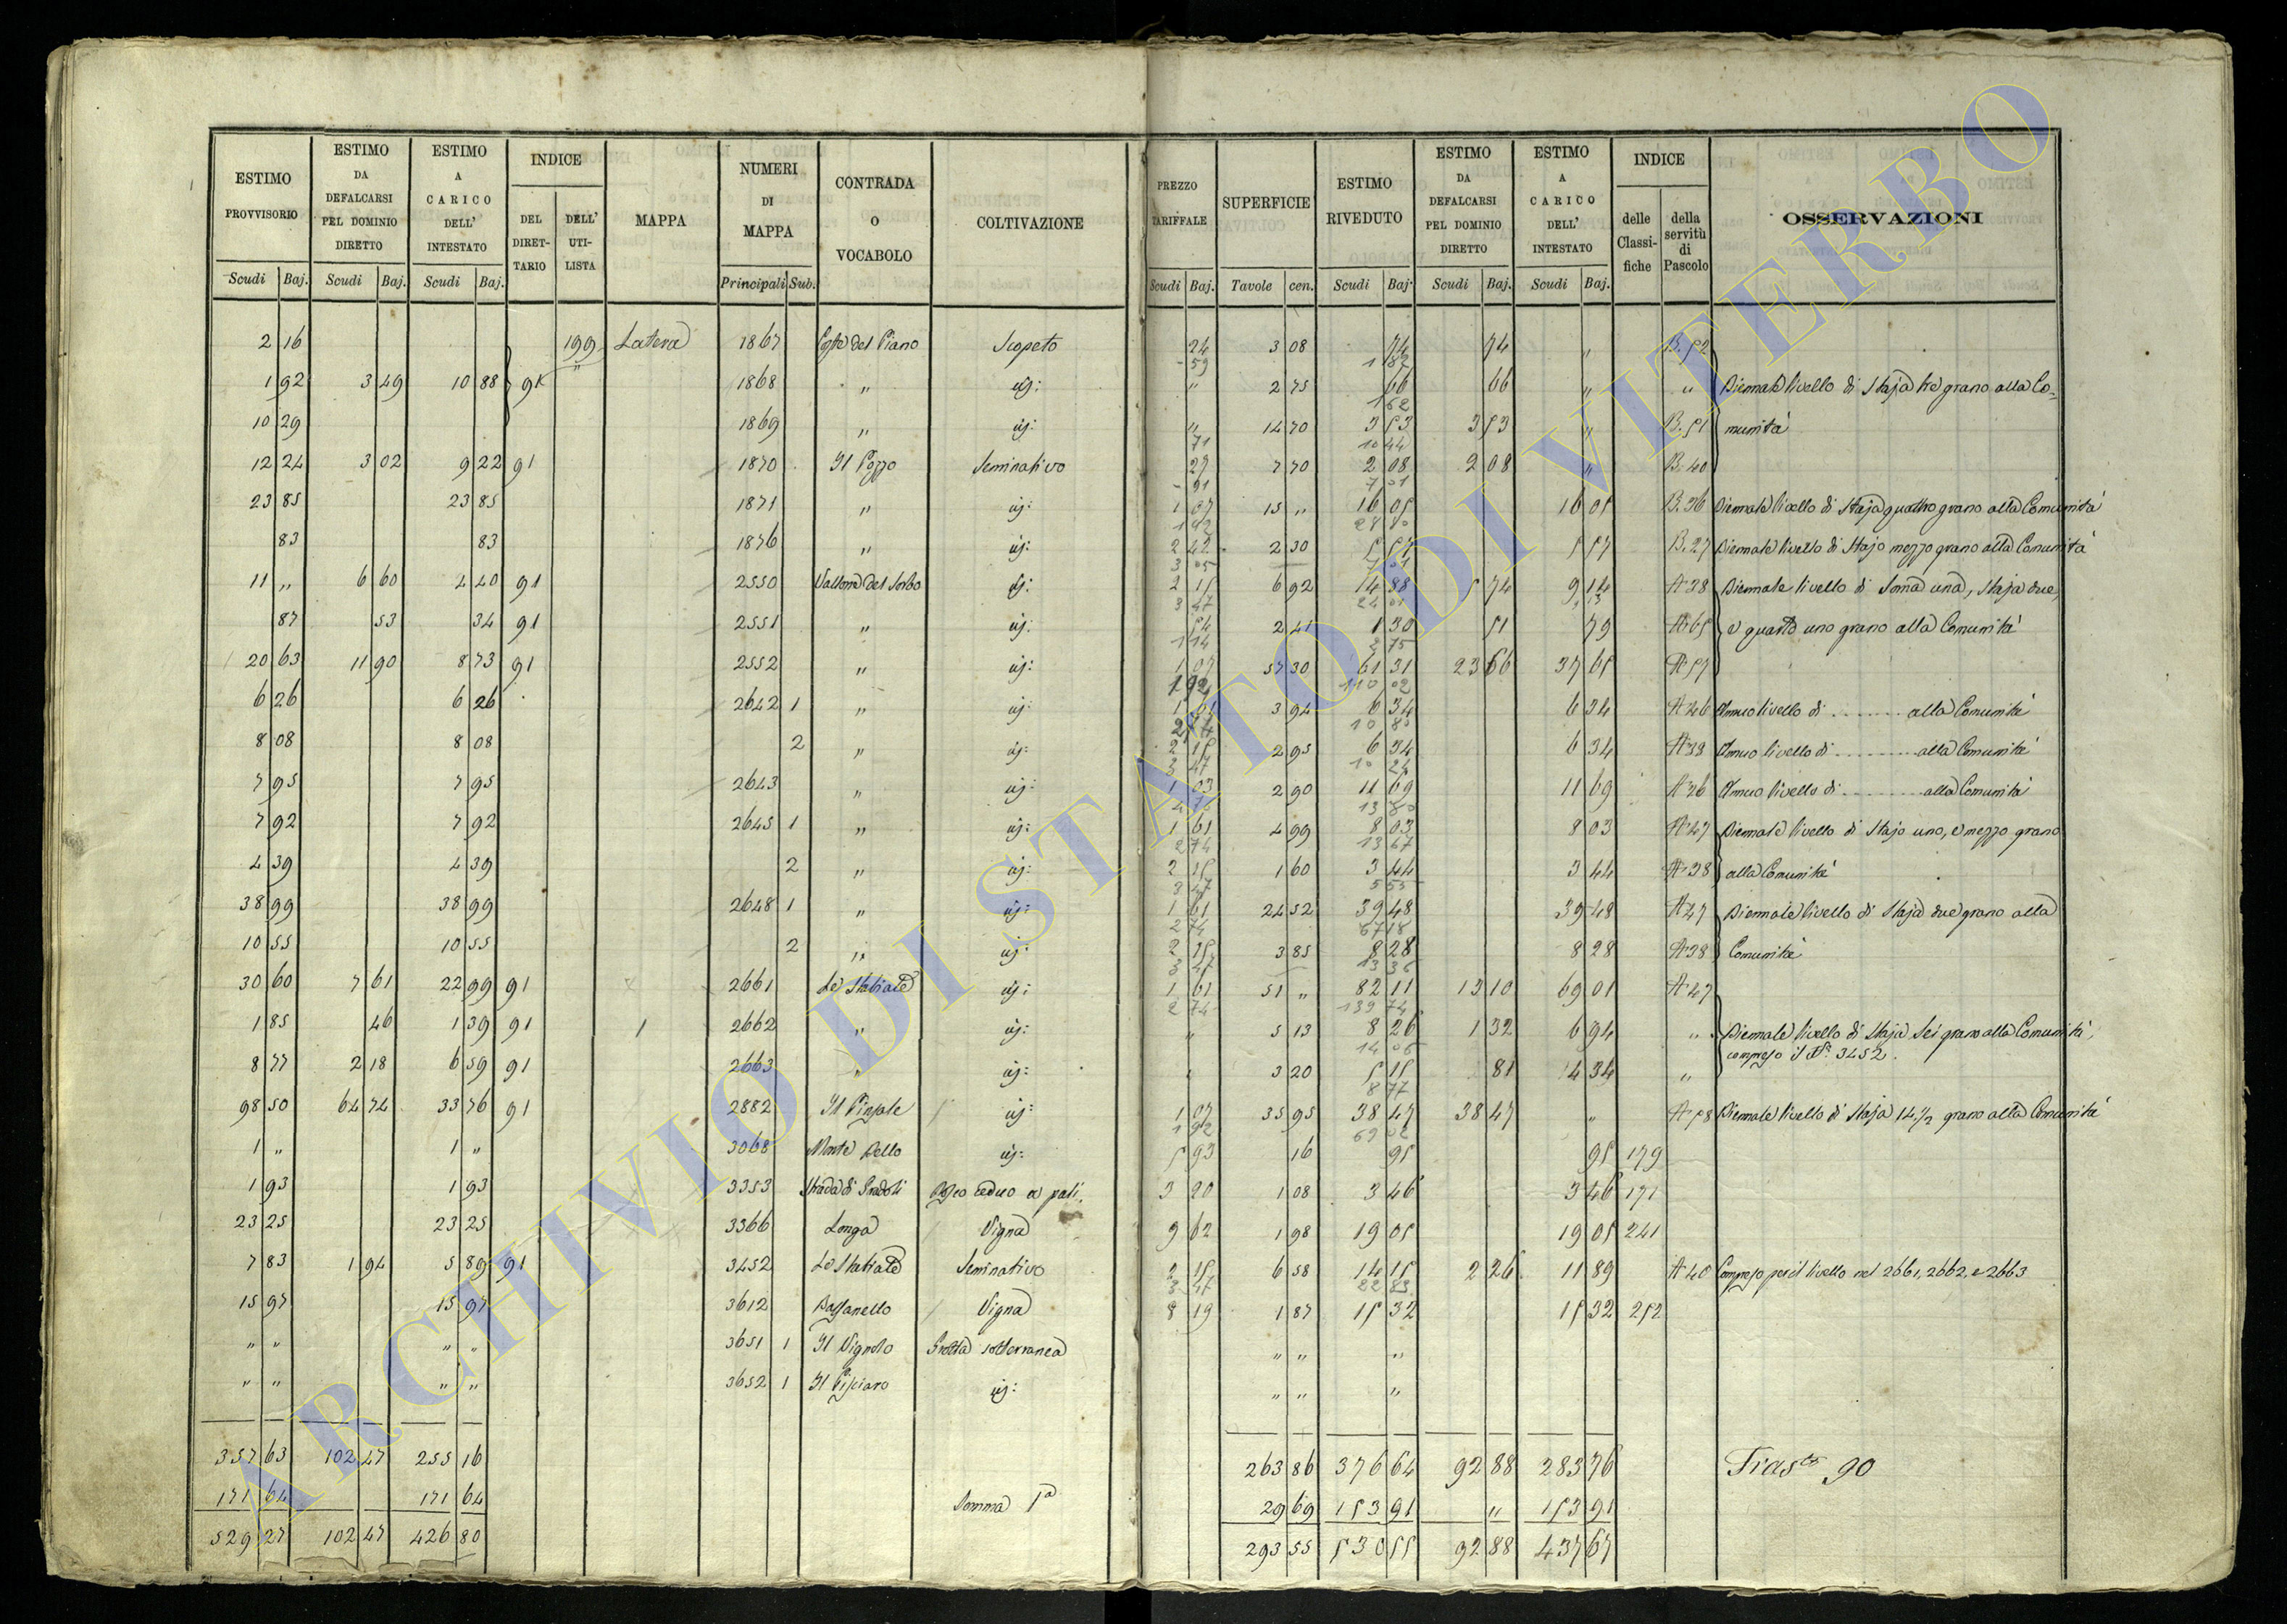 ESTIMO PROVVISORIO | ESTIMO DA DEFALCARSI PEL DOMINIO DIRETTO | ESTIMO A CARICO DELL' INTESTATO | INDICE DEL DIRETTARIO | DELL' UTILISTA | MAPPA | NUMERI DI MAPPA | CONTRADA O VOCABOLO | COLTIVAZIONE | PREZZO TARIFFALE | SUPERFICIE | ESTIMO RIVEDUTO | ESTIMO DA DEFALCARSI PEL DOMINIO DIRETTO | ESTIMO A CARICO DELL' INTESTATO | INDICE delle Classifiche | della servitù di Pascolo | OSSERVAZIONI
Scudi Baj. | Scudi Baj. | Scudi Baj. | Principali Sub. | Scudi Baj. | Tavole cen. | Scudi Baj. | Scudi Baj. | Scudi Baj.
2 16 | 199 | Latera | 1867 | del Piano | Scopeto | 24 | 3 08 | 74 | 74 | " | B.52
1 92 | 3 49 | 10 88 | 91 | " | 1868 | " | id: | " | 2 75 | 66 | 66 | " | " | Biennale livello di Staja tre grano alla Co-
10 29 | 1869 | " | id: | " | 14 70 | 3 53 | 3 53 | " | B.51 | munità
12 24 | 3 02 | 9 22 | 91 | 1870 | Il Pozzo | Seminativo | 27 | 7 70 | 2 08 | 2 08 | " | B.40
23 85 | 23 85 | 1871 | " | id: | 1 07 | 15 " | 16 05 | 16 05 | B.36 | Biennale livello di Staja quattro grano alla Comunità
83 | 83 | 1876 | " | id: | 2 42 | 2 30 | 5 57 | 5 57 | B.27 | Biennale livello di Stajo mezzo grano alla Comunità
11 " | 6 60 | 4 40 | 91 | 2550 | Vallone del Sorbo | id: | 2 15 | 6 92 | 14 88 | 5 74 | 9 14 | A 38 | Biennale livello di Soma una, Staja due,
87 | 53 | 34 | 91 | 2551 | " | id: | 54 | 2 41 | 1 30 | 51 | 79 | A 65 | e quarto uno grano alla Comunità
20 63 | 11 90 | 8 73 | 91 | 2552 | " | id: | 1 07 | 57 30 | 61 31 | 23 66 | 37 65 | A 57
6 26 | 6 26 | 2642 1 | " | id: | 1 61 | 3 94 | 6 34 | 6 34 | A 46 | Annuo livello di ........ alla Comunità
8 08 | 8 08 | 2 | " | id: | 2 15 | 2 95 | 6 34 | 6 34 | A 38 | Annuo livello di ........ alla Comunità
7 95 | 7 95 | 2643 | " | id: | 03 | 2 90 | 11 69 | 11 69 | A 26 | Annuo livello di ........ alla Comunità
7 92 | 7 92 | 2645 1 | " | id: | 1 61 | 4 99 | 8 03 | 8 03 | A 47 | Biennale livello di Stajo uno, e mezzo grano
4 39 | 4 39 | 2 | " | id: | 2 15 | 1 60 | 3 44 | 3 44 | A 38 | alla Comunità
38 99 | 38 99 | 2648 1 | " | id: | 1 61 | 24 52 | 39 48 | 39 48 | A 47 | Biennale livello di Staja due grano alla
10 55 | 10 55 | 2 | " | id: | 2 15 | 3 85 | 8 28 | 8 28 | A 38 | Comunità
30 60 | 7 61 | 22 99 | 91 | 2661 | Le Stabiate | id: | 1 61 | 51 " | 82 11 | 13 10 | 69 01 | A 47
1 85 | 46 | 1 39 | 91 | 2662 | " | id: | " | 5 13 | 8 26 | 1 32 | 6 94 | " | Biennale livello di Staja Sei grano alla Comunità,
8 77 | 2 18 | 6 59 | 91 | 2663 | " | id: | " | 3 20 | 5 15 | 81 | 4 34 | " | compreso il N° 3452.
98 50 | 64 74 | 33 76 | 91 | 2882 | id: | 1 07 | 35 95 | 38 47 | 38 47 | " | A 58 | Biennale livello di Staja 14 1/2 grano alla Comunità
1 " | 1 " | 3068 | Monte Bello | id: | 5 93 | 16 | 95 | 95 | 179
1 93 | 1 93 | 3353 | Strada di Gradoli | Bosco ceduo a pali | 3 20 | 1 08 | 3 46 | 3 46 | 171
23 25 | 23 25 | 3366 | Longa | Vigna | 9 62 | 1 98 | 19 05 | 19 05 | 241
7 83 | 1 94 | 5 89 | 91 | 3452 | Le Stabiate | Seminativo | 2 15 | 6 58 | 14 15 | 2 26 | 11 89 | A 40 | Compreso per il livello nel 2661, 2662, e 2663
15 97 | 15 97 | 3612 | Bassanello | Vigna | 8 19 | 1 87 | 15 32 | 15 32 | 252
" " | " " | 3651 1 | Il Vignolo | Grotta sotterranea | " " | "
" " | " " | 3652 1 | Il Pisciaro | id: | " " | "
357 63 | 102 47 | 255 16 | 263 86 | 376 64 | 92 88 | 283 76 | 90
171 64 | 171 64 | Somma 1ª | 29 69 | 153 91 | " | 153 91
529 27 | 102 47 | 426 80 | 293 55 | 530 55 | 92 88 | 437 67
ARCHIVIO DI STATO DI VITERBO